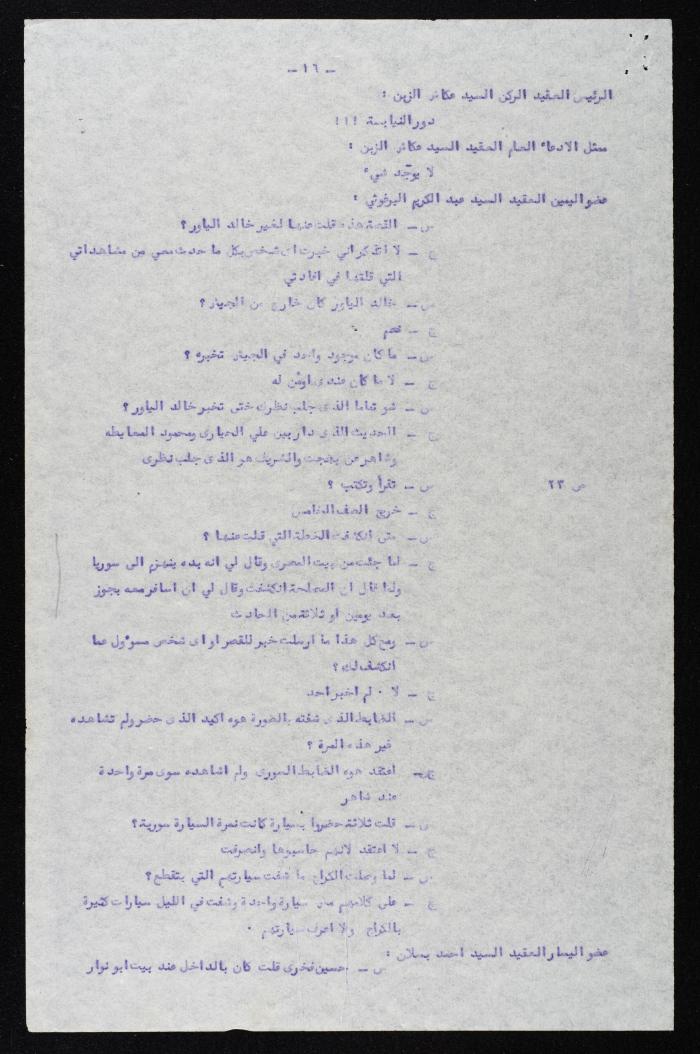 - ١٦ -
الرئيس العقيد الركن السيد عكاش الزبن :
دور النيابة !!!
ممثل الادعاء العام العقيد السيد عكاش الزبن :
لا يوجد شيء
عضو اليمين العقيد السيد عبد الكريم البرغوثي :
س - القصة هذه قلت عنها لغير خالد الياور ؟
ج - لا اتذكر اني خبرت اى شخص بكل ما حدث معي من مشاهداتي
التي قلتها في افادتي
س - خالد الياور كان خارج من الجيش ؟
ج - نعم
س - ما كان موجود واحد في الجيش تخبره ؟
ج - لا ما كان عندى اوثق له
س - شو تماما الذى جلب نظرك حتى تخبر خالد الياور ؟
ج - الحديث الذى دار بين علي الحيارى ومحمود المعايطه
وشاهر من بهجت والشريف هو الذى جلب نظرى
س - تقرأ وتكتب ؟ ص ٢٣
ج - خريج الصف الخامس
س - متى انكشفت الخطة التي قلت عنها ؟
ج - لما جئت من بيت المصرى وقال لي انه بده ينهزم الى سوريا
ولذا قال ان المصلحة انكشفت وقال لي ان اسافر معه يجوز
بعد يومين او ثلاثة من الحادث
س - ومع كل هذا ما ارسلت خبر للقصر او اى شخص مسوءول عما
انكشف لك ؟
ج - لا ٠ لم اخبر احد
س - الضابط الذى شفته بالصورة هوه اكيد الذى حضر ولم تشاهده
غير هذه المرة ؟
ج - اعتقد هوه الضابط السورى ولم اشاهده سوى مرة واحدة
عند شاهر
س - قلت ثلاثة حضروا بسيارة كانت نمرة السيارة سورية ؟
ج - لا اعتقد لانهم حاسبوها وانصرفت
س - لما وصلت الكراج ما شفت سيارتهم التي بتقطع ؟
ج - على كلامهم معي سيارة واحدة وشفت في الليل سيارات كثيرة
بالكراج ولا اعرف سيارتهم ٠
عضو اليسار العقيد السيد احمد بسلان :
س - حسين فخرى قلت كان بالداخل عند بيت ابو نوار